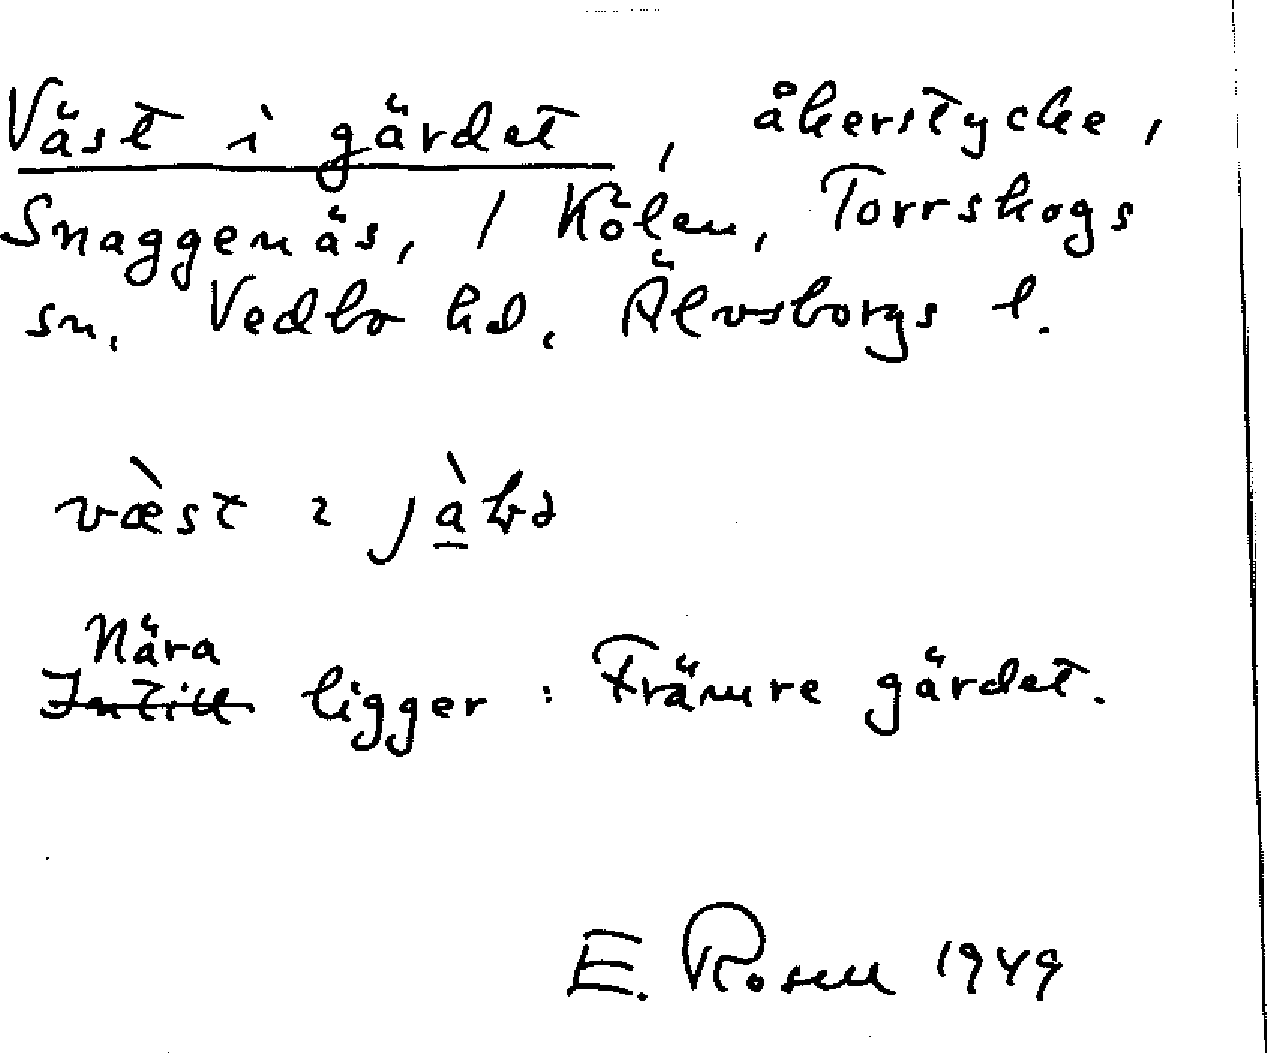 Väst i gärdet, åkerstycke,
Snaggenäs, / Kölen, Torrskogs
sn. Vedbo hd. Älvsborgs l.
væ̀st ɩ
Nära
Intill ligger: Främre gärdet.
E. Rosell 1949